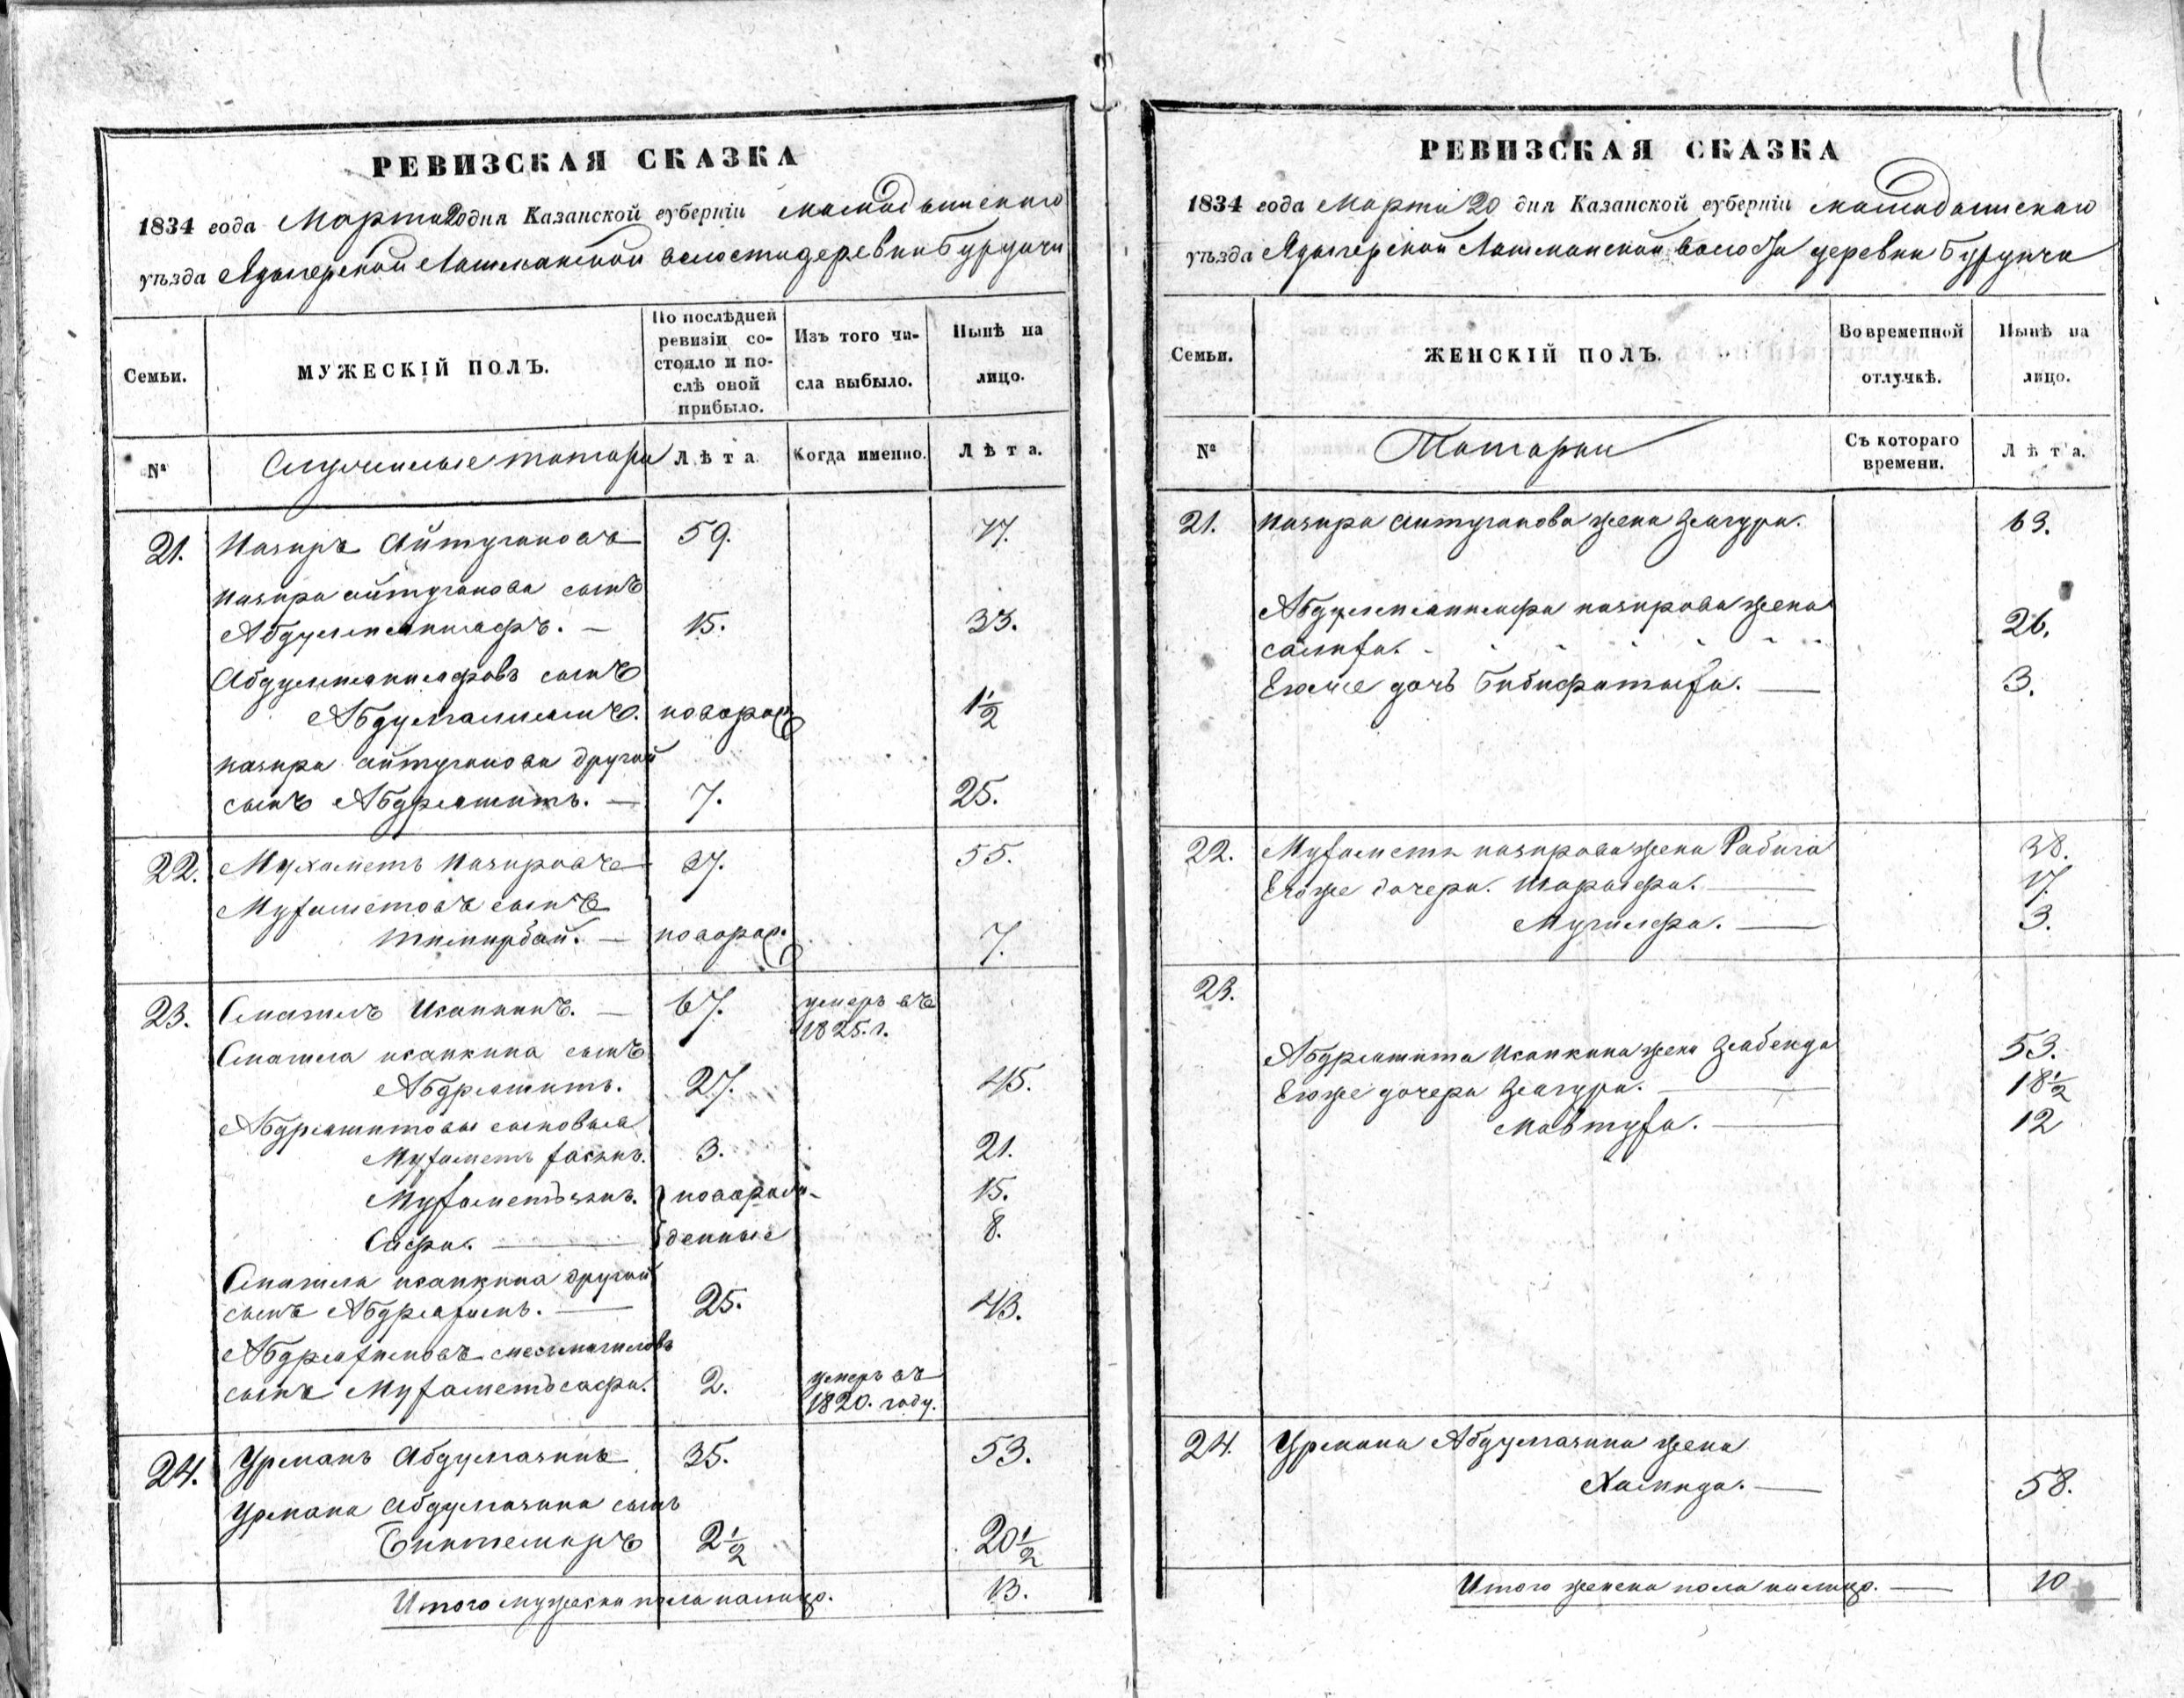 11
РЕВИЗСКАЯ СКАЗКА
1834 года Марта 20 дня Казанской губерніи мамадышскаго
уѣзда Ядыгерской Лашманской волости деревни Бурдучи
Семьи.
МУЖЕСКІЙ ПОЛЪ.
По послѣдней
ревизіи со-
стояло и по-
слѣ оной
прибыло.
Изъ того чи-
сла выбыло.
Нынѣ на
лицо.
№
Служилые татара
Лѣта
Когда именно.
Лѣта.
21. Назиръ Айтугановъ 59. 77.
Назира айтуганова сынъ
15. 33.
сынъ
новорож 1½
назира айтуганова другой
сынъ Абдрешитъ. — 7. 25.
22. Мухаметь Назировъ 37. 55.
Муfаметовъ сынъ
Тимирбай. — новорож. 7.
23. Смагилъ Исанкинъ. — 67. умеръ въ
1825. г.
Смагила исанкина сынъ
Абдрешитъ. 27. 45.
Абдрешитовы сыновья
Муfаметь 3. 21.
Муfаметзянъ. новорож- 15.
Сафи. — денные 8.
Смагила исанкина другой
сынъ Абдреfимъ. — 25. 43.
Абдреfимовъ
сынъ Муfаметьсафи. 2. умеръ въ
1820. году.
24. Урманъ Абдулмазинъ 35. 53.
Урмана Абдулмазина сынъ
Биктемиръ 2½ 20½
Итого мужеска пола налицо. 13.
РЕВИЗСКАЯ СКАЗКА
1834 года Марта 20 дня Казанской губерніи мамадышскаго
уѣзда Ядыгерской Лашманской волости деревни Бурдучи
Семьи.
ЖЕНСКІЙ ПОЛЪ.
Во временной
отлучкѣ.
Нынѣ на
лицо.
№
Татарки
Съ котораго
времени.
Лѣта.
21. Назира Айтуганова жена Загура. 63.
назирова жена
Салиfа. 26.
Егоже дочь Бибифатыfа. — 3.
22. Муfаметь назирова жена Рабига 38.
Егоже дочери. Шарифа. — 17.
— 3.
23.
Абдрешита Исанкина жена Забейда 53.
Егоже дочери Загура. — 18½
Мавтуfа. — 12
24. Урмана Абдулмазина жена
Хамида. — 58.
Итого женска пола налицо. — 10